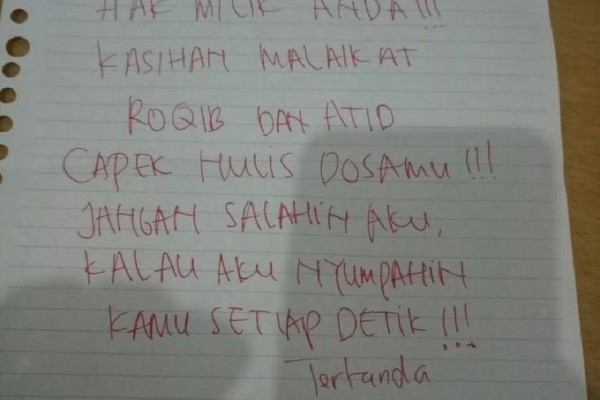 HAK MILIK ANDA!!!
KASIHAN MALAIKAT
ROQIB DAN ATID
CAPEK NULIS DOSAMU!!!
JANGAN SALAHIN AKU,
KALAU AKU NYUMPAHIN
KAMU SETIAP DETIK!!!
Tertanda